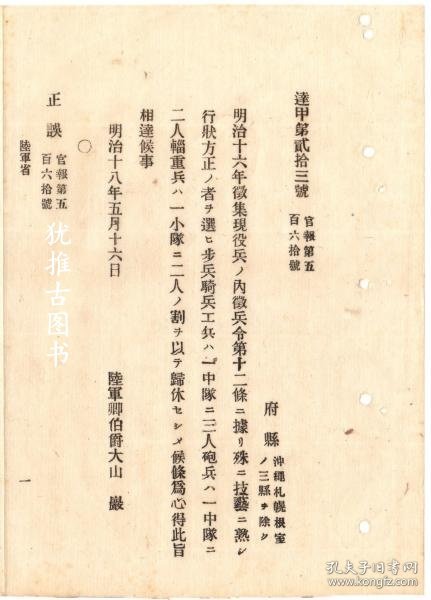 達甲第貳拾三號 官報第五百六拾號
府縣 沖繩札幌根室ノ三縣ヲ除ク
明治十六年徵集現役兵ノ內徵兵令第十二條ニ據リ殊ニ技藝ニ熟シ
行狀方正ノ者ヲ選ヒ步兵騎兵工兵ハ一中隊ニ三人砲兵ハ一中隊ニ
二人輜重兵ハ一小隊ニ二人ノ割ヲ以テ歸休セシメ候條爲心得此旨
相達候事
明治十八年五月十六日
陸軍卿伯爵大山巖
○
正誤 官報第五百六拾號
陸軍省
一
犹推古图书
孔夫子旧书网
www.kongfz.com